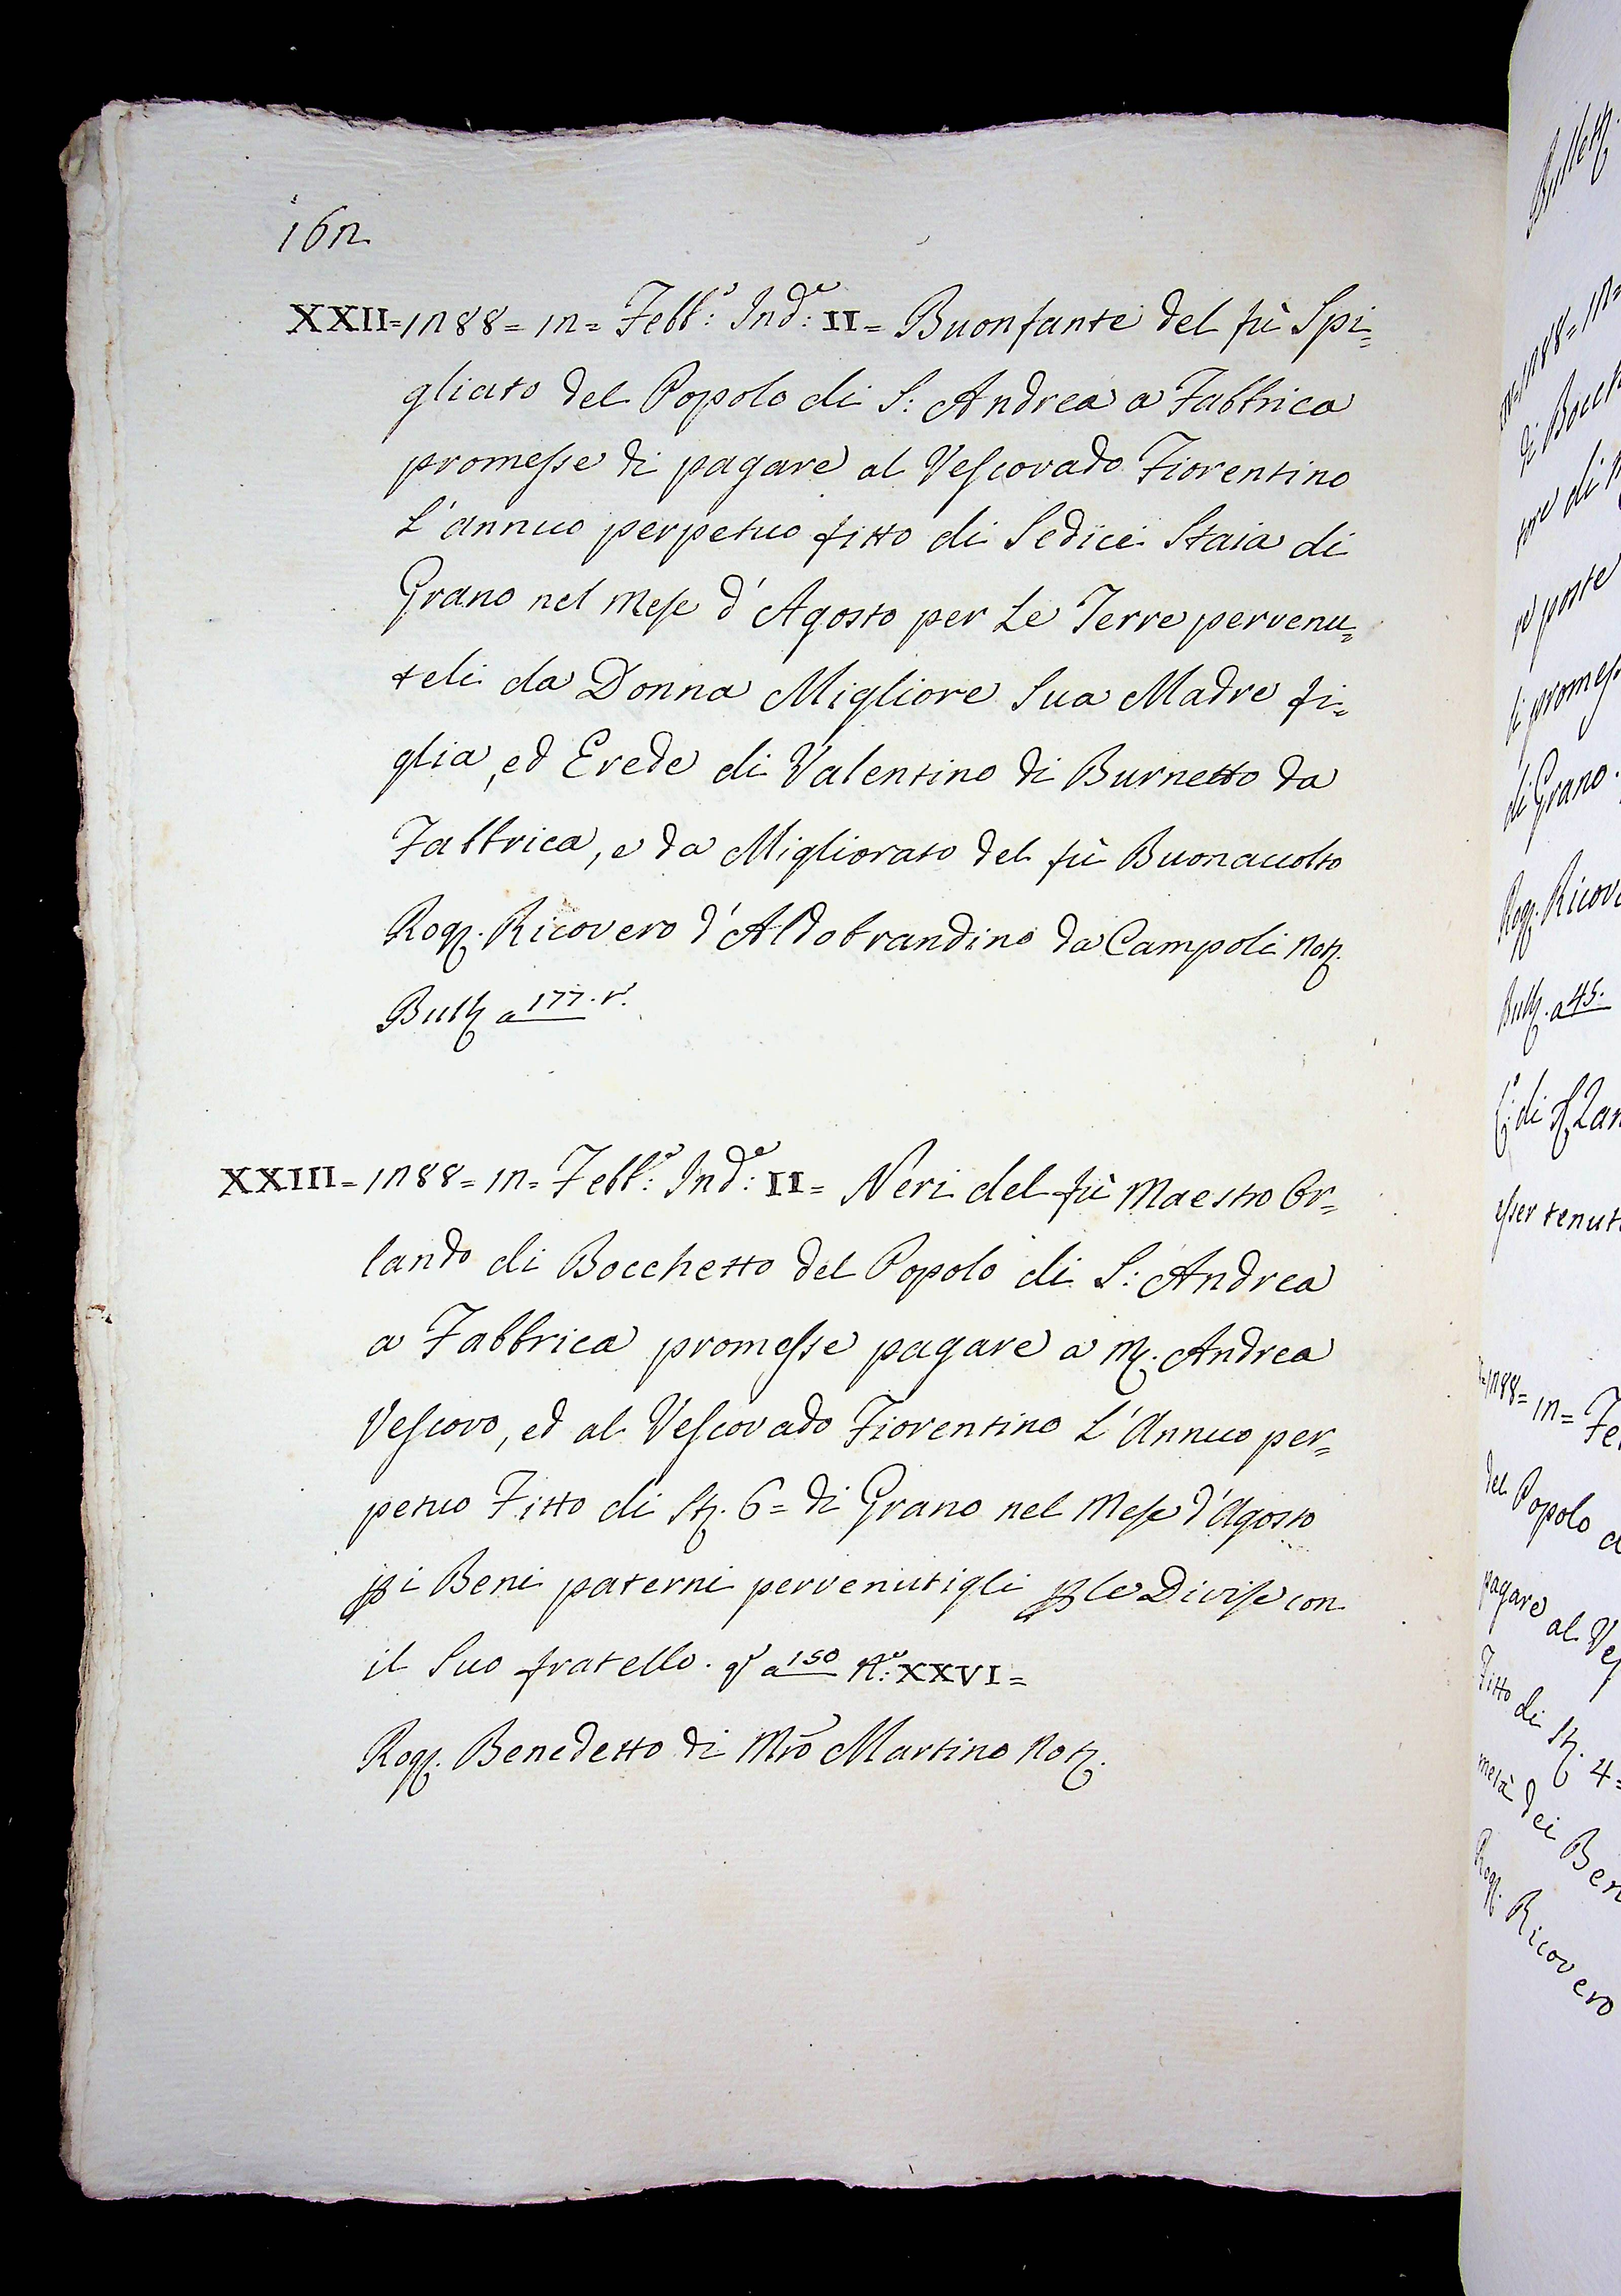 162
XXII=1288=12= Febb.º: Ind.e: II= Buonfante del fù Spi=
gliato del Popolo di S: Andrea a Fabbrica
promesse di pagare al Vescovado Fiorentino
L'annuo perpetuo fitto di Sedici Staia di
Grano nel Mese d'Agosto per Le Terre pervenu=
teli da Donna Migliore Sua Madre fi=
glia, ed Erede di Valentino di Burnetto da
Fabbrica, e da Migliorato del fù Buonaccolto
Rog. Ricovero d'Aldobrandino da Campoli Not.
Bull. a 177. r.
XXIII=1288=12= Febb.º: Ind.e: II= Neri del fù Maestro Or=
lando di Bocchetto del Popolo di S: Andrea
a Fabbrica promesse pagare a M. Andrea
Vescovo, ed al Vescovado Fiorentino L'Annuo per=
petuo Fitto di St. 6= di Grano nel Mese d'Agosto
p i Beni paterni pervenutigli p le Divise con
il Suo fratello. q.º a 150 N.º: XXVI=
Rog. Benedetto di Mro Martino Not.
Bullett.
1288=12=
di Bocch
tore di
re poste
li promess
di Grano.
Rog. Ricove
Bull. a 45.
di
esser tenut
1288=12= Fe
del Popolo d
pagare al Ves
Fitto di St. 4=
metà dei Ben
Rog. Ricovero